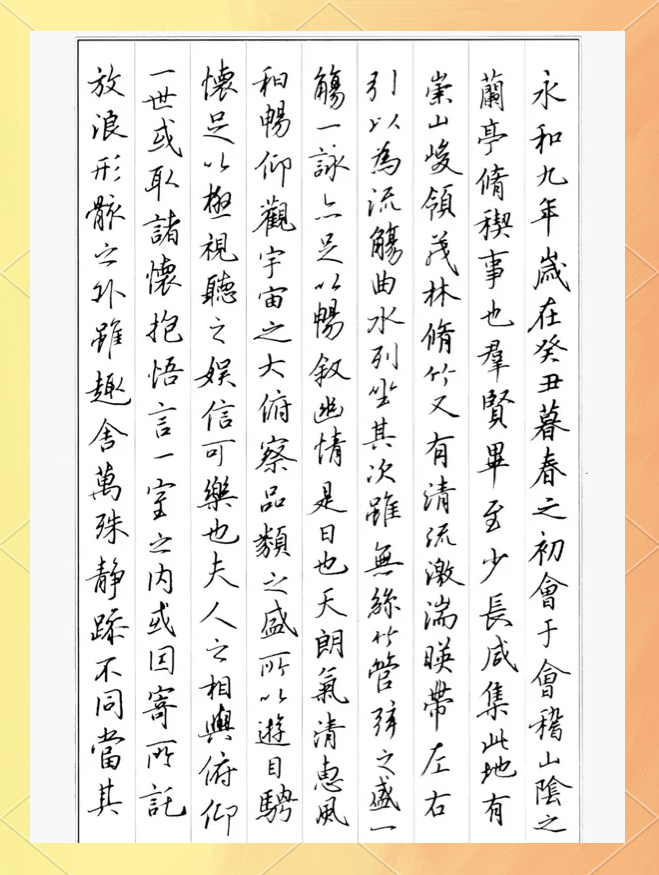 永和九年歲在癸丑暮春之初會于會稽山陰之
蘭亭脩稧事也羣賢畢至少長咸集此地有
崇山峻領茂林脩竹又有清流激湍暎帶左右
引以為流觴曲水列坐其次雖無絲竹管弦之盛一
觴一詠亦足以暢叙幽情是日也天朗氣清惠風
和暢仰觀宇宙之大俯察品類之盛所以遊目騁
懷足以極視聽之娛信可樂也夫人之相與俯仰
一世或取諸懷抱悟言一室之內或因寄所託
放浪形骸之外雖趣舍萬殊靜躁不同當其